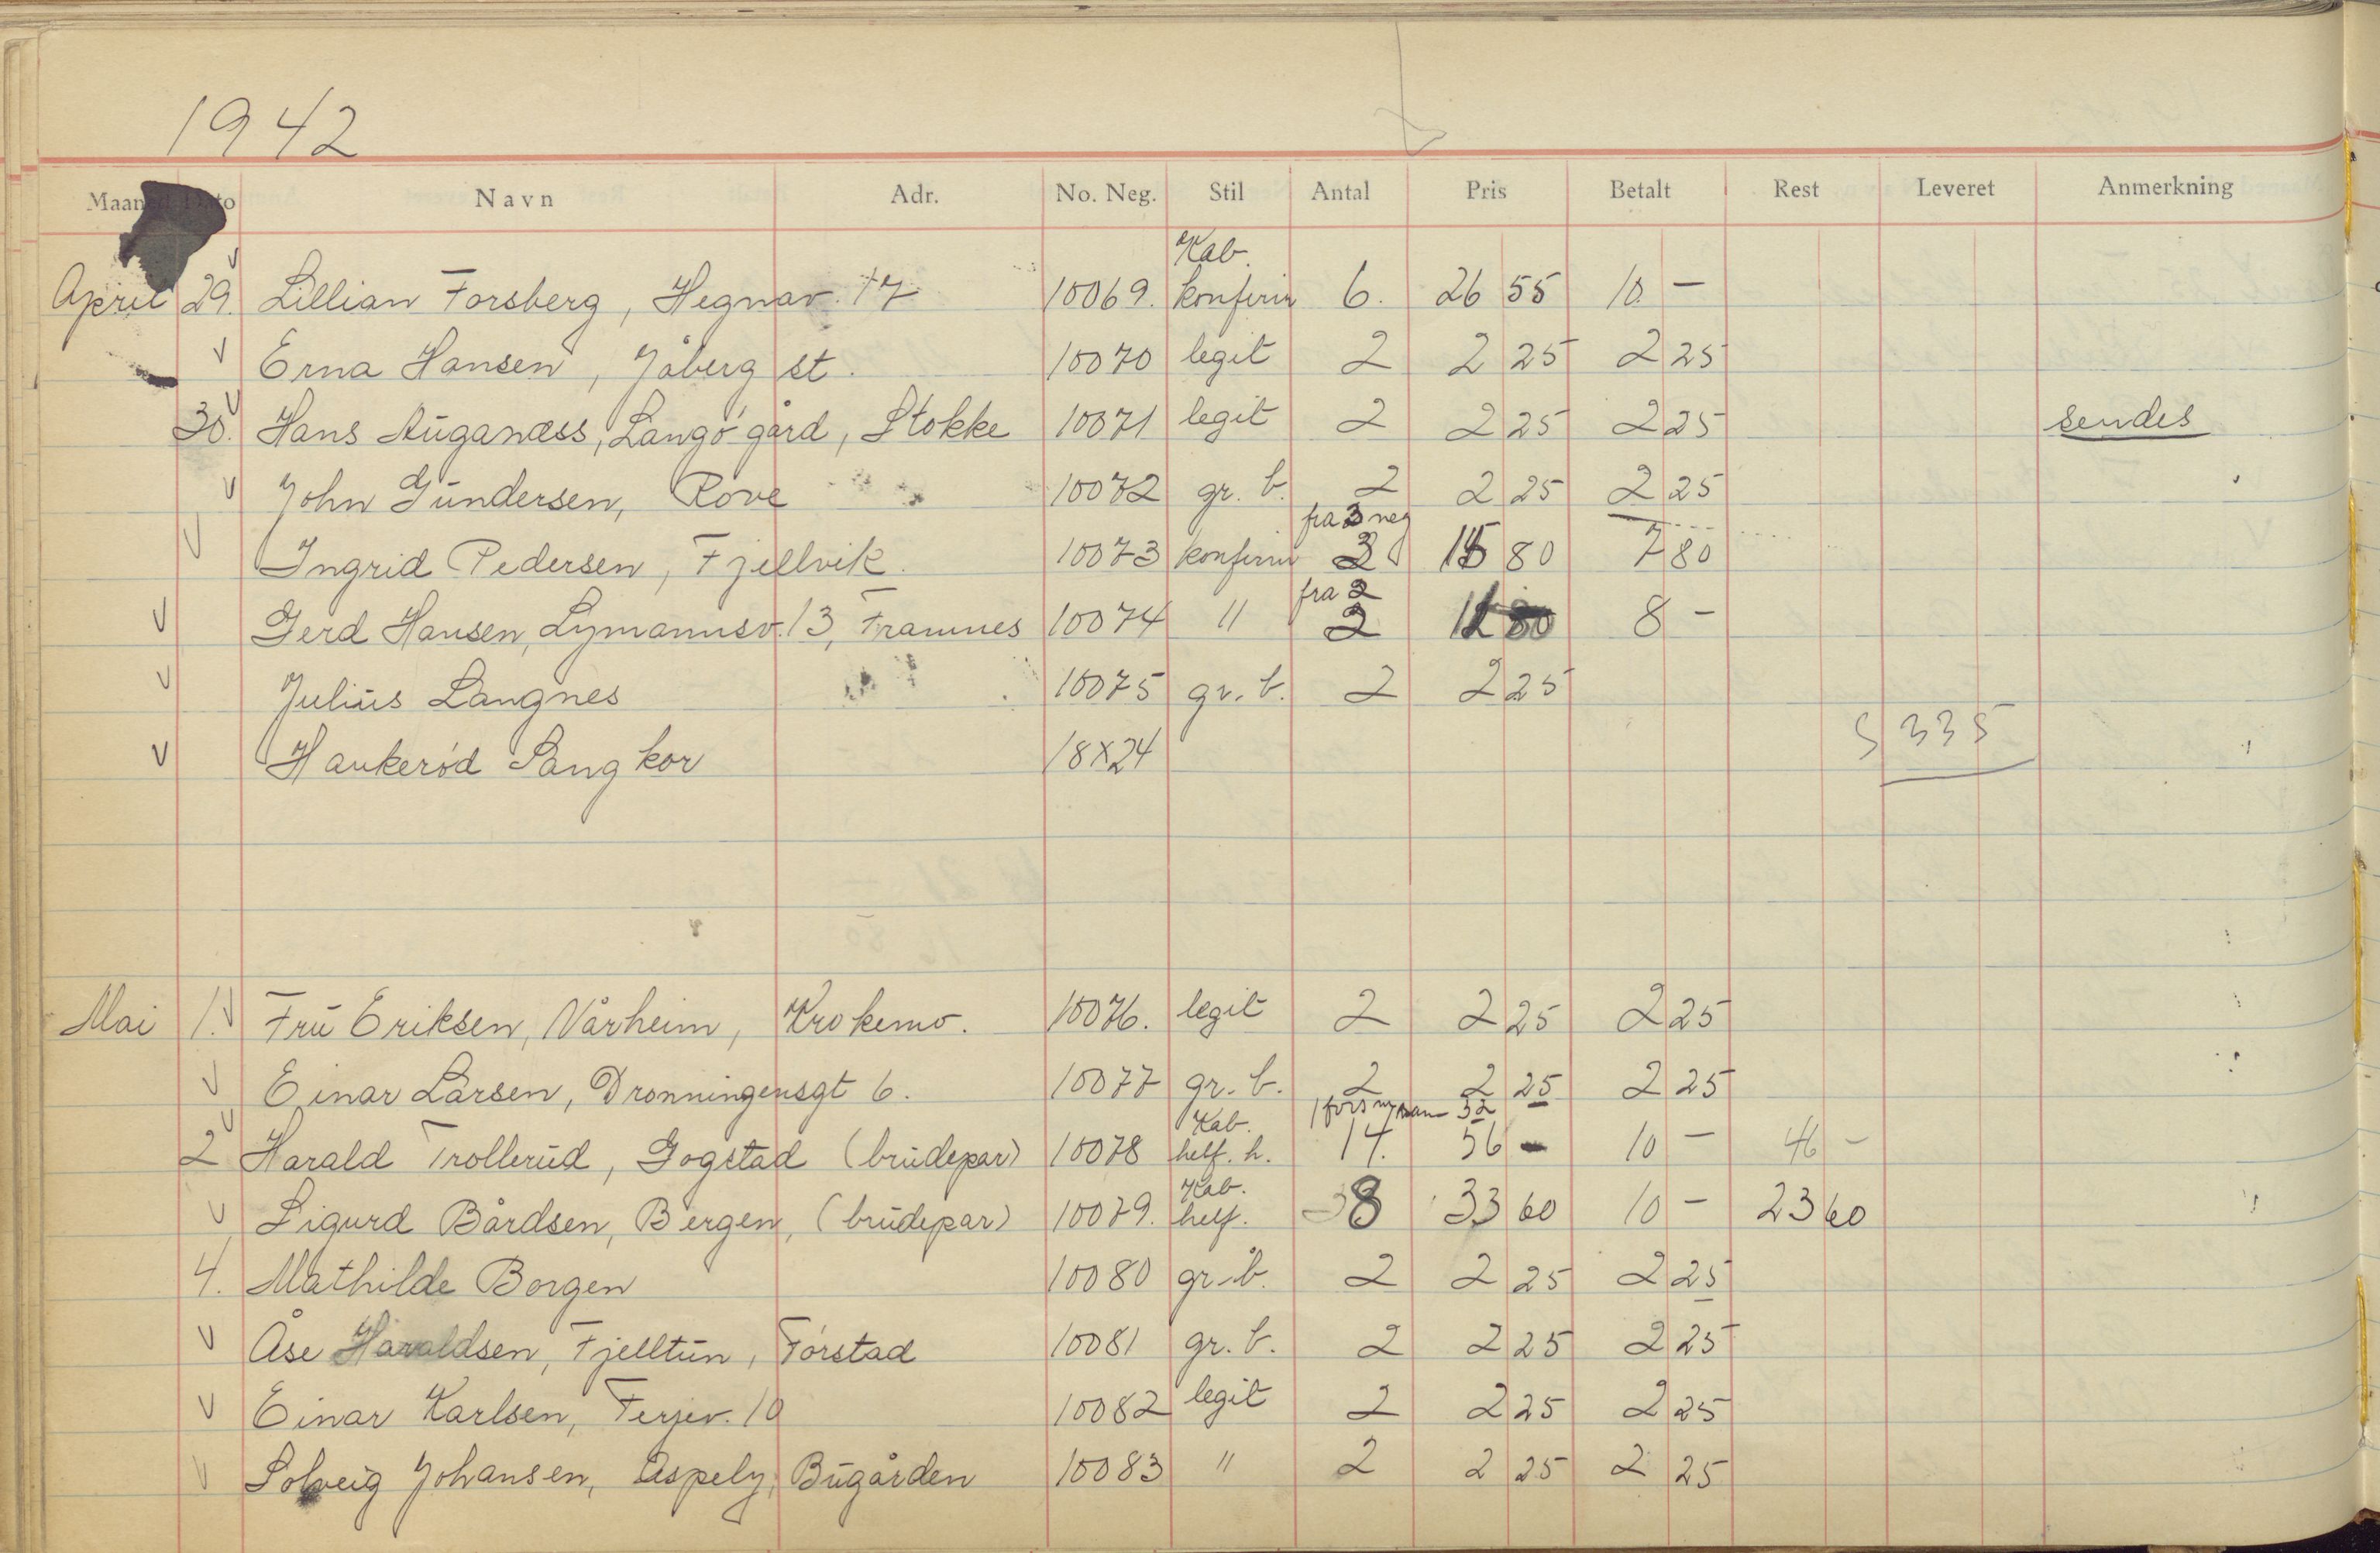 1942
Maaned Dato Navn Adr. No. Neg. Stil Antal Pris Betalt Rest Leveret Anmerkning
Kab.
April 29. Lillian Forsberg, Hegnav. 17 10069. konfirm 6. 26 55 10 -
Erna Hansen, Jåberg st. 10070 legit 2 2 25 2 25
30. Hans Auganæss, Langø gård, Stokke 10071 legit 2 2 25 2 25 sendes
John Gundersen, Rove 10072 gr. b. 2 2 25 2 25
fra 3 neg
Ingrid Pedersen, Fjellvik. 10073 konfirm 3 15 80 7 80
fra 2
Gerd Hansen, Lymannsv. 13, Framnes 10074 " 2 8 -
Julius Langnes 10075 gr. b. 2 2 25
S 335
Haukerød Sang kor 18X24
Mai 1. Fru Eriksen, Vårheim, Krokemo. 10076. legit 2 2 25 2 25
Einar Larsen, Dronningensgt 6. 10077 gr. b. 2 2 25 2 25
Kab. 52
2 Harald Trollerud, Gogstad (brudepar) 10078 helf. h. 14. 56 - 10 - 46 -
Kab.
Sigurd Bårdsen, Bergen, (brudepar) 10079. helf. 8 33 60 10 - 23 60
4. Mathilde Borgen 10080 gr. b. 2 2 25 2 25
Åse Haraldsen, Fjelltun, Førstad 10081 gr. b. 2 2 25 2 25
Einar Karlsen, Ferjev. 10 10082 legit 2 2 25 2 25
Solveig Johansen, Aspely, Bugården 10083 " 2 2 25 2 25